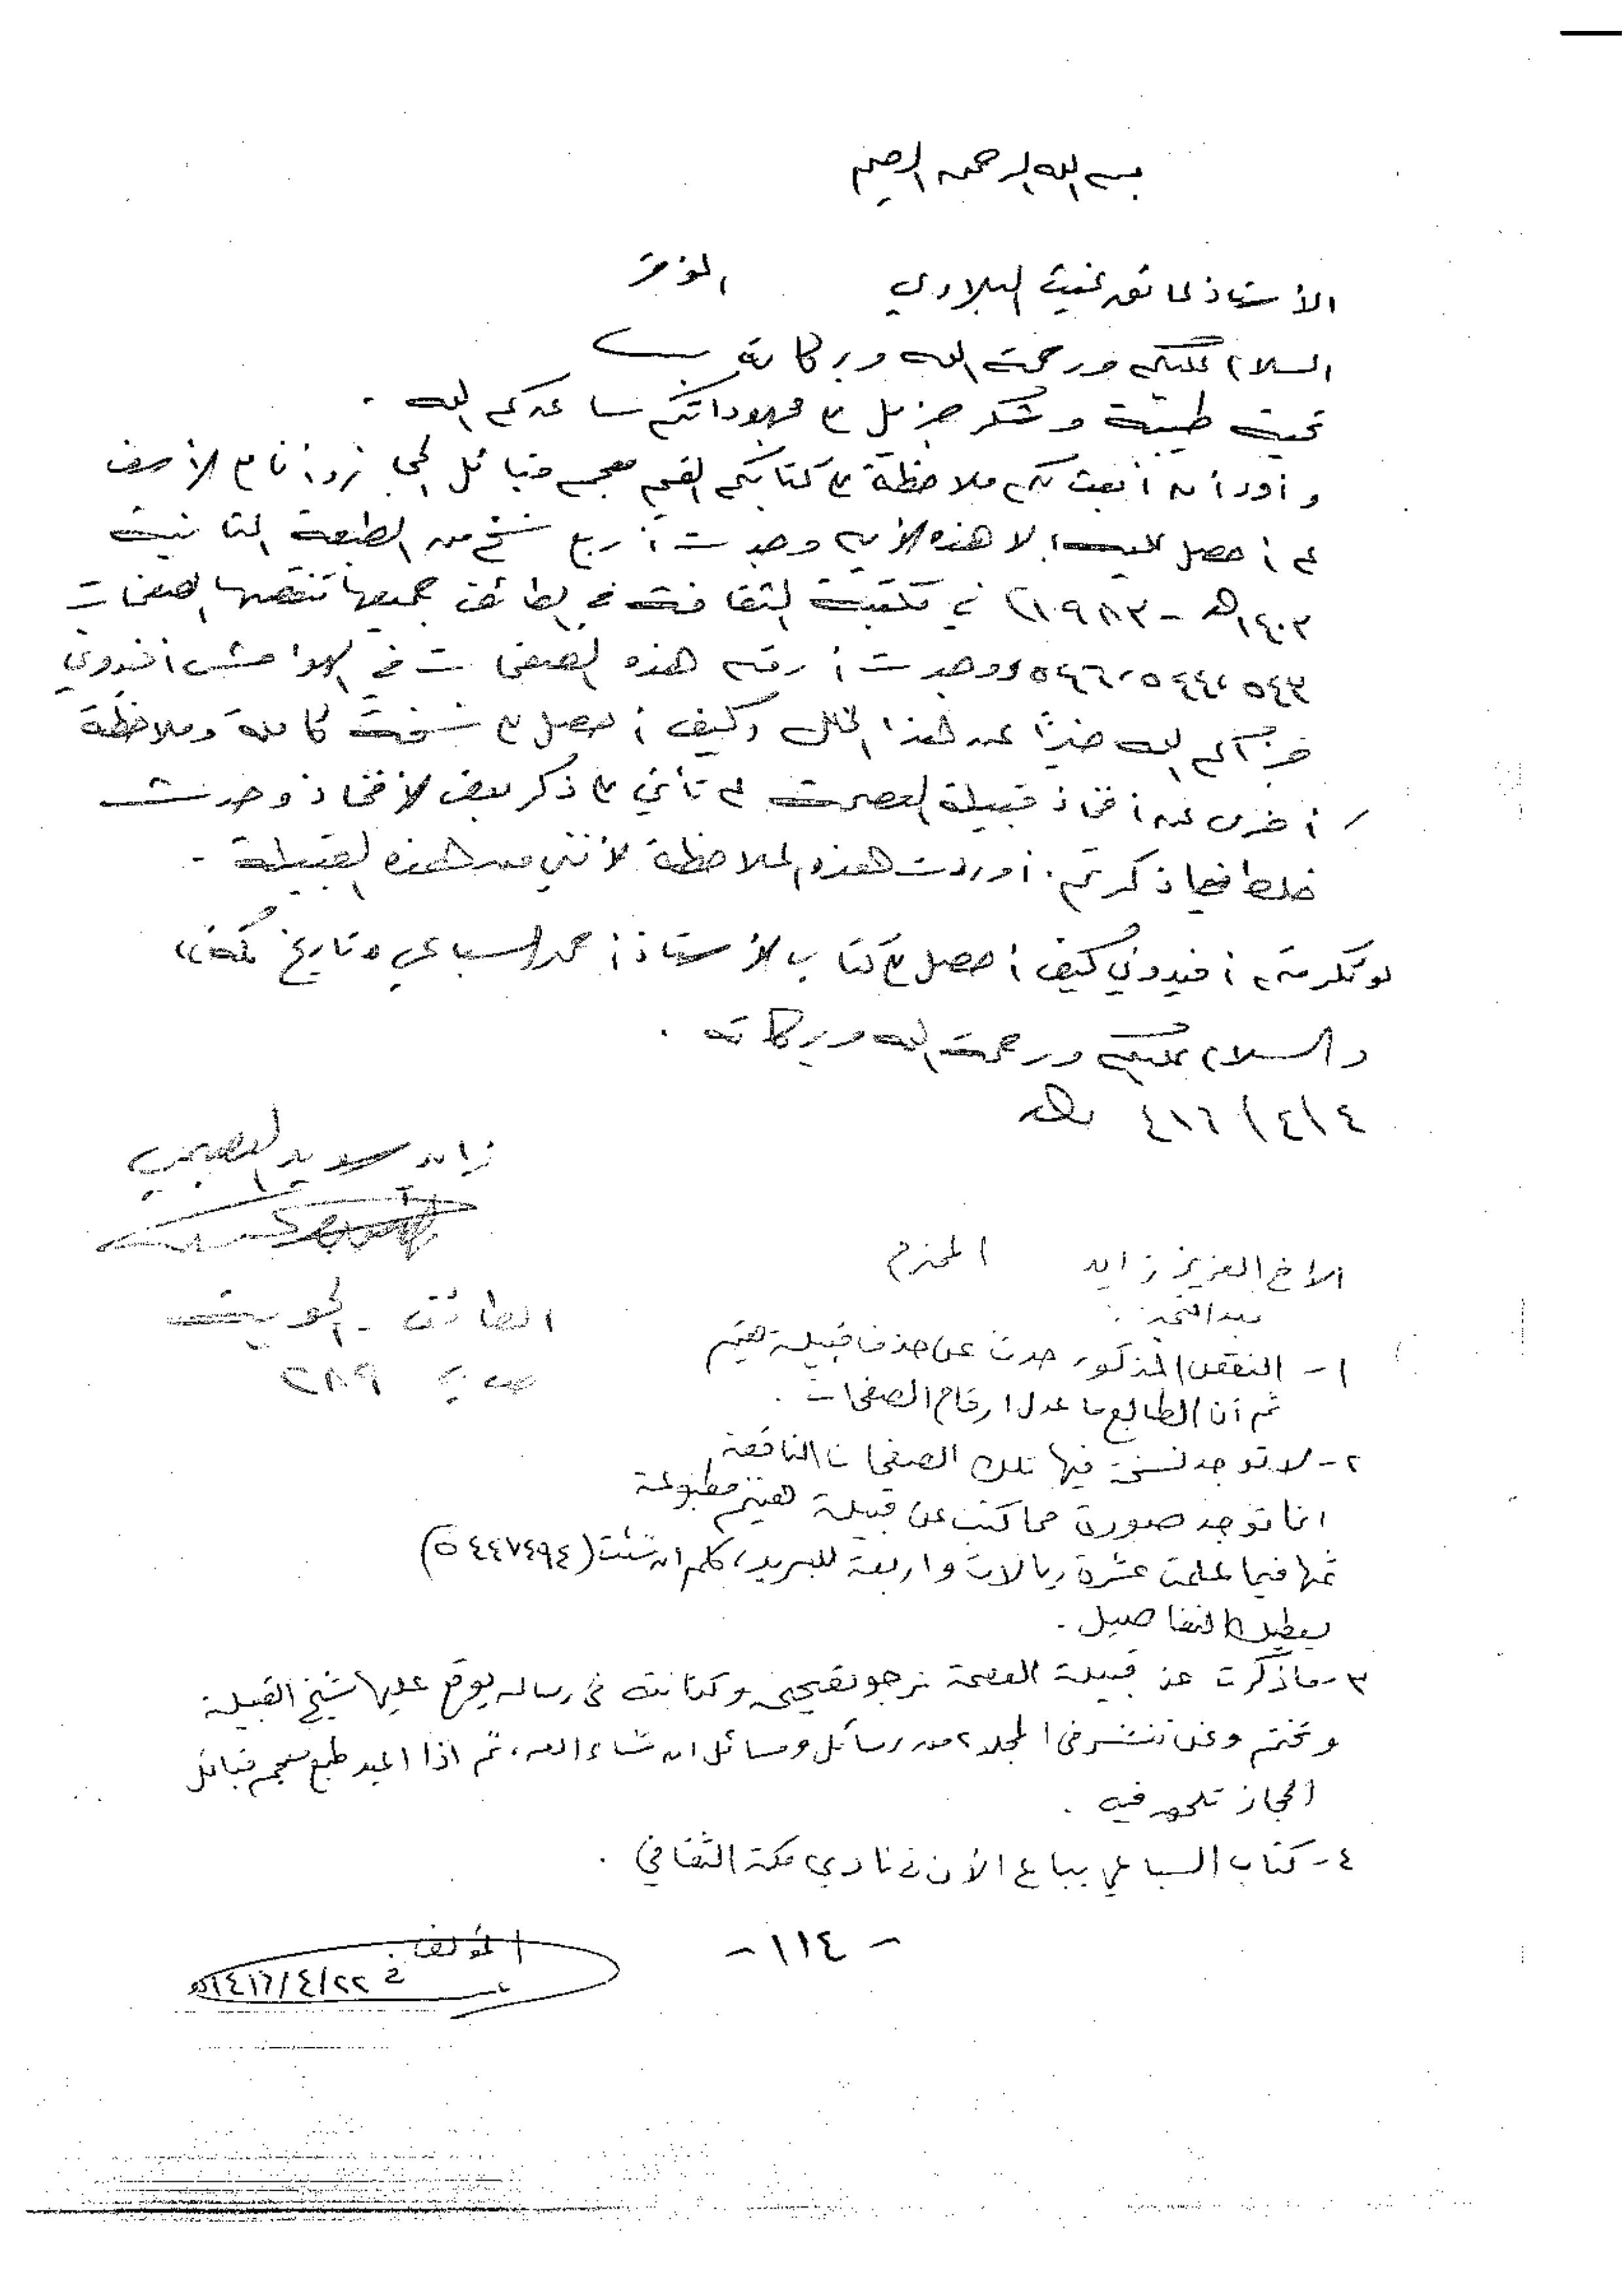 بسم الله الرحمن الرحيم
الأستاذ عاتق غيث البلادي الموقر
السلام عليكم ورحمة الله وبركاته
تحية طيبة وشكر جزيل على مجهوداتكم ساعدكم الله .
وأود أن أبعث لكم ملاحظة على كتابكم القيم معجم قبائل الحجاز وأنا مع الأسف
لم أحصل عليه إلا هذه الأيام وجدت أربع نسخ من الطبعة الثانية
١٤٠٣هـ - ١٩٨٣م في مكتبة الثقافة في الطائف جميعها تنقصها الصفحات
٥٤٣، ٥٤٤، ٥٤٦ ووجدت أرقم هذه الصفحات في الهوامش أفيدوني
جزآكم الله خيرًا عن هذا الخلل وكيف أحصل على نسخة كاملة وملاحظة
أخرى عن أفخاذ قبيلة العصمة لم تأتي على ذكر بعض الأفخاذ وحدث
خلط فيما ذكرتم . أوردت هذه الملاحظة لأنني من هذه القبيلة .
لو تكرمتم أفيدوني كيف أحصل على كتاب الأستاذ أحمد السباعي « تاريخ مكة »
والسلام عليكم ورحمة الله وبركاته .
٤/٤/٤١٦ هـ
زايد العصيمي
الطائف - الحوية
ص ب ٢٨٩
الاخ العزيز زايد المحترم
بعد التحية :
١- النقص المذكور حدث عن حذف قبيلة هتيم
ثم أن الطابع ما عدل ارقام الصفحات .
٢- لا توجد نسخة فيها تلك الصفحات الناقصة
انما توجد صورة مما كتب عن قبيلة هتيم مطبوعة
ثمنها فيما علمت عشرة ريالات واربعة للبريد، كلم ان شئت (٥٤٤٧٤٩٤)
يعطيك التفاصيل .
٣- ماذكرت عن قبيلة العصمة نرجو تصحيحه وكتابته في رساله يوقع عليها شيخ القبيلة
وتختم ونحن ننشر في المجلد ٢ من رسائل ومسائل ان شاء الله، ثم اذا اعيد طبع معجم قبائل
الحجاز تلحق فيه .
٤- كتاب السباعي يباع الأن في نادي مكة الثقافي .
المؤلف :
في ١٤١٦/٤/٢٢هـ
- ١١٤ -